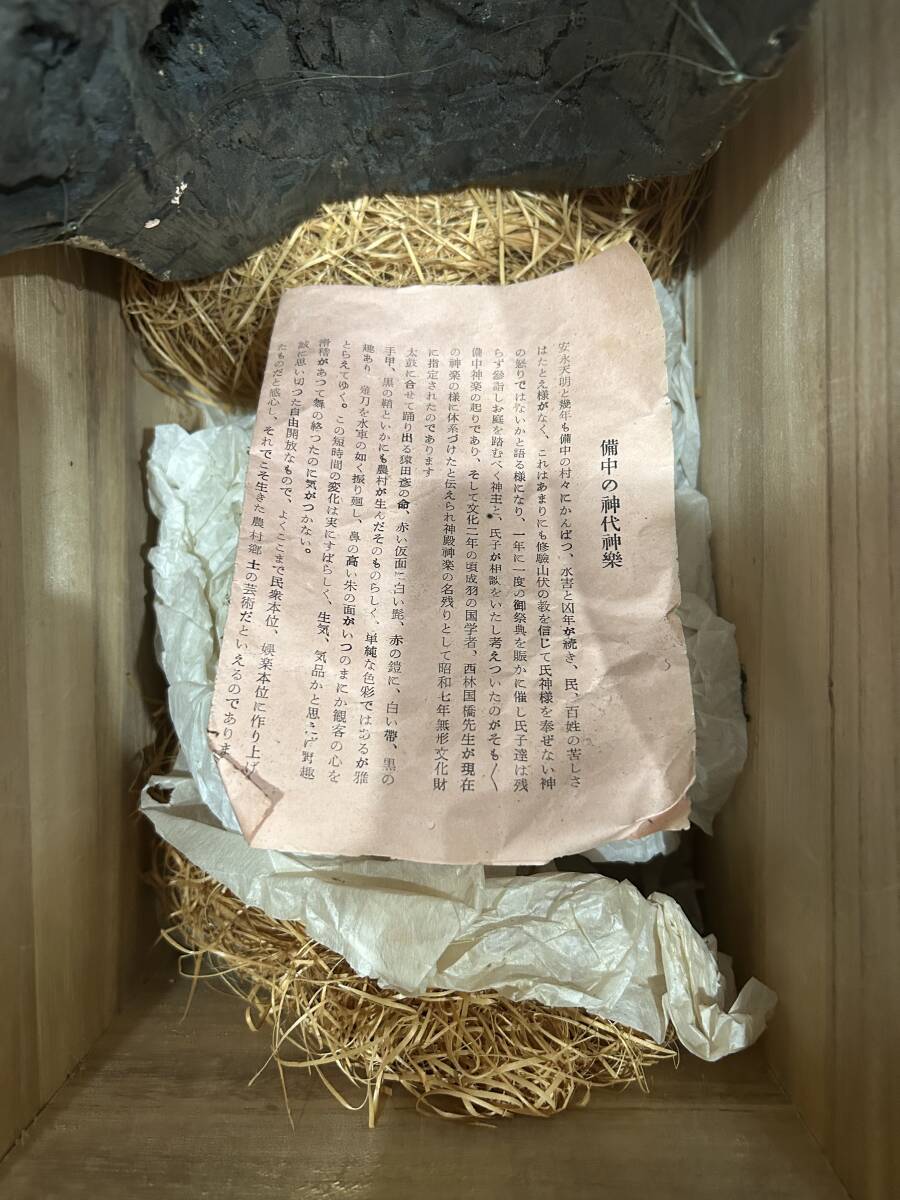 備中の神代神樂
安永天明と幾年も備中の村々にかんばつ、水害と凶年が続き、民、百姓の苦しさ
はたとえ様がなく、これはあまりにも修驗山伏の教を信じて氏神様を奉ぜない神
の怒りではないかと語る様になり、一年に一度の御祭典を賑かに催し氏子達は残
らず參詣しお庭を踏むべく神主と、氏子が相談をいたし考えついたのがそも〳〵
備中神楽の起りであり、そして文化二年の頃成羽の国学者、西林国橋先生が現在
の神楽の様に体系づけたと伝えられ神殿神楽の名残りとして昭和七年無形文化財
に指定されたのであります
太鼓に合せて踊り出る猿田彦の命、赤い仮面に白い髭、赤の鎧に、白い帶、黒の
手甲、黒の鞘といかにも農村が生んだそのものらしく、単純な色彩ではあるが雅
趣あり、薙刀を水車の如く振り廻し、鼻の高い朱の面がいつのまにか観客の心を
とらえてゆく。この短時間の変化は実にすばらしく、生気、気品かと思えば野趣
滑稽があつて舞の終つたのに気がつかない。
誠に思い切つた自由開放なもので、よくここまで民衆本位、娯楽本位に作り上げ
たものだと感心し、それでこそ生きた農村郷土の芸術だといえるのでありま